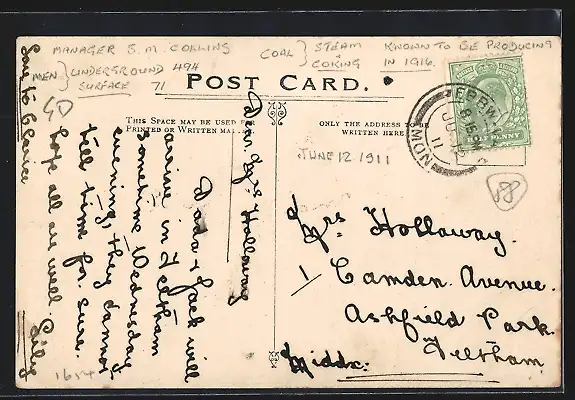 MANAGER S. M. COLLINS
MEN } UNDERGROUND 494
SURFACE 71
COAL } STEAM + COKING
KNOWN TO BE PRODUCING
IN 1916.
POST CARD.
THIS SPACE MAY BE USED FOR
PRINTED OR WRITTEN
ONLY THE ADDRESS TO BE
WRITTEN HERE
JUNE 12 1911
58
Dear Mrs Holloway
Dad & Jack will
arrive in Feltham
sometime Wednesday
evening, they cannot
tell time for sure.
hope all are well
Love to
Mrs Holloway.
1 Camden Avenue.
Ashfield Park.
Feltham
Middx.
EBBW
8.15 PM
JU 12
11
MON